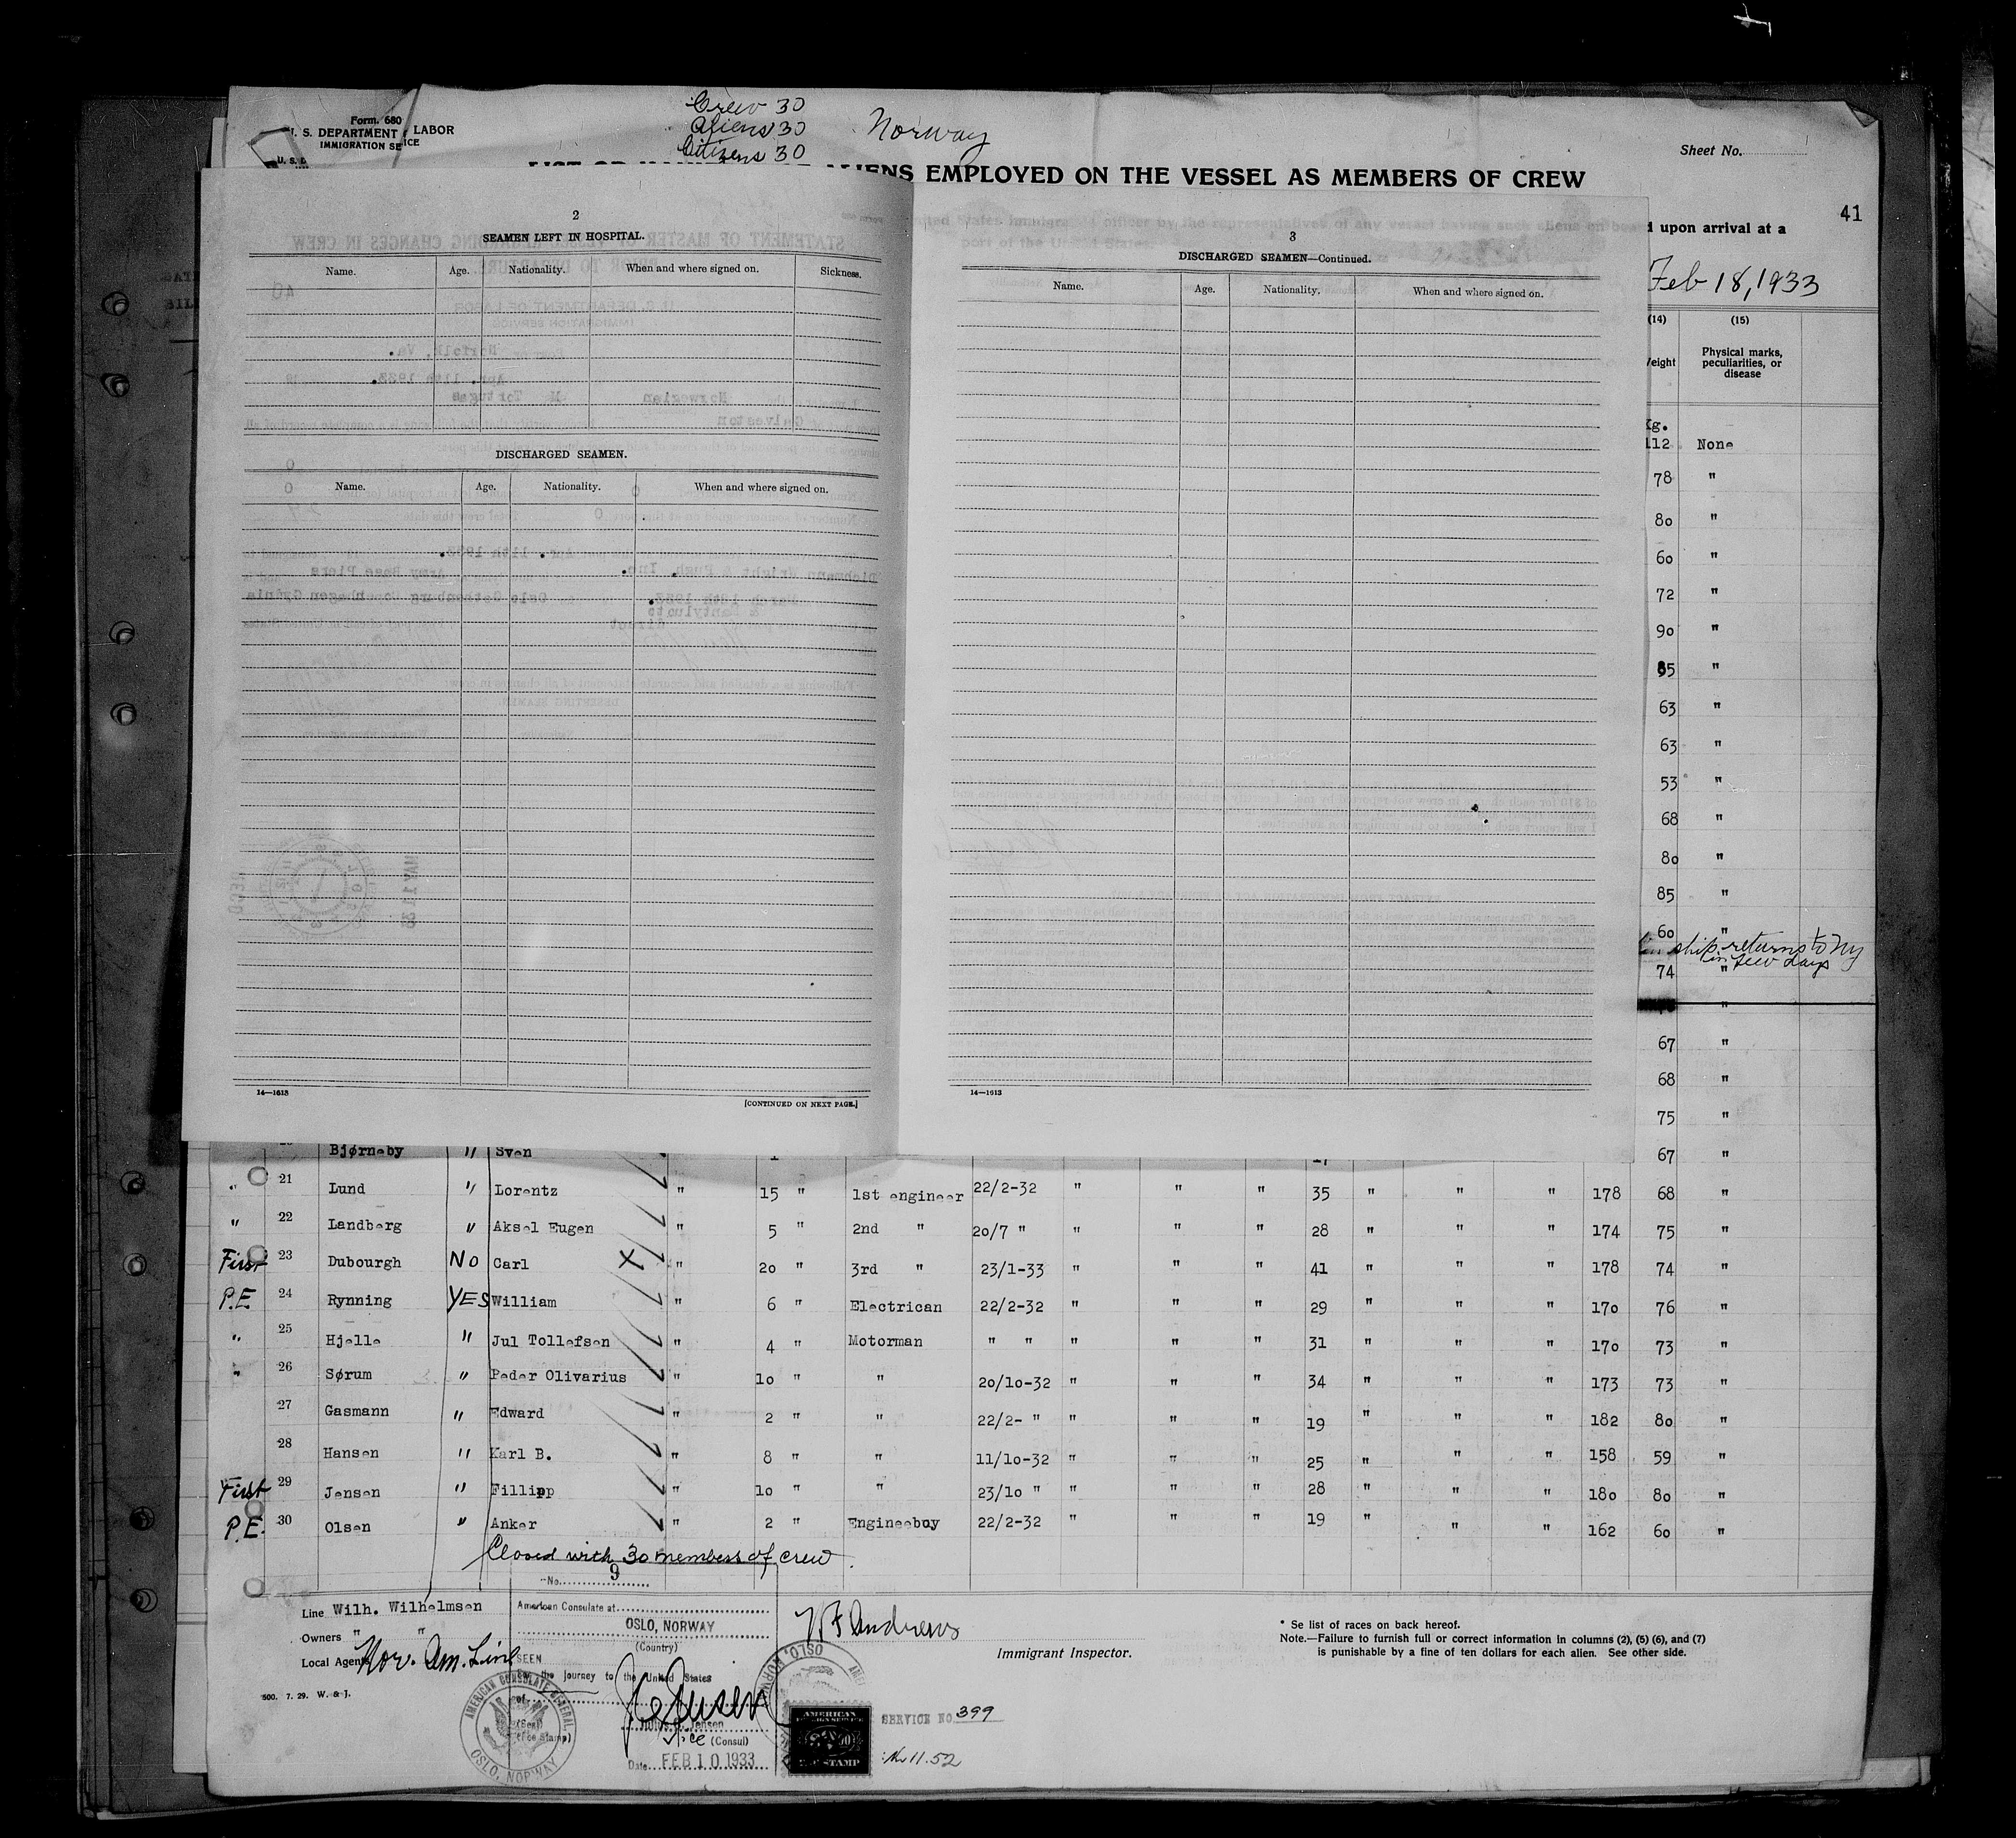 Form. 680
U. S. DEPARTMENT LABOR
IMMIGRATION SE ICE
Crew 30
Aliens 30
Citizens 30
Norway
Sheet No.
ALIENS EMPLOYED ON THE VESSEL AS MEMBERS OF CREW
41
upon arrival at a
Feb 18, 1933
2
SEAMEN LEFT IN HOSPITAL.
Name. Age. Nationality. When and where signed on. Sickness.
DISCHARGED SEAMEN.
Name. Age. Nationality. When and where signed on.
14—1613
[CONTINUED ON NEXT PAGE.]
3
DISCHARGED SEAMEN—Continued.
Name. Age. Nationality. When and where signed on.
14—1613
(14) (15)
Weight Physical marks, peculiarities, or disease
Kg.
112 None
78 "
80 "
60 "
72 "
90 "
85 "
63 "
63 "
53 "
68 "
80 "
85 "
60 "
ship returns to NY
in few days
74 "
"
67 "
68 "
75 "
Bjørneby " Sven 67 "
" 21 Lund " Lorentz " 15 " 1st engineer 22/2-32 " " " 35 " " " 178 68 "
" 22 Landberg " Aksel Eugen " 5 " 2nd " 20/7 " " " " 28 " " " 174 75 "
First 23 Dubourgh No Carl X " 20 " 3rd " 23/1-33 " " " 41 " " " 178 74 "
P.E. 24 Rynning YES William " 6 " Electrican 22/2-32 " " " 29 " " " 170 76 "
" 25 Hjelle " Jul Tollefsen " 4 " Motorman " " " " " 31 " " " 170 73 "
" 26 Sørum " Peder Olivarius " 10 " " 20/10-32 " " " 34 " " " 173 73 "
27 Gasmann " Edward " 2 " " 22/2- " " " " 19 " " " 182 80 "
28 Hansen " Karl B. " 8 " " 11/10-32 " " " 25 " " " 158 59 "
First 29 Jensen " Fillipp " 10 " " 23/10 " " " " 28 " " " 180 80 "
P.E. 30 Olsen " Anker " 2 " Engineeboy 22/2-32 " " " 19 " " " 162 60 "
Closed with 30 members of crew.
No. 9
Line Wilh. Wilhelmsen
Owners " "
Local Agents Nor. Am. Line
500. 7. 29. W. & J.
American Consulate at
OSLO, NORWAY
(Country)
SEEN
the journey to the United States
of
(Seal)
(Fee Stamp)
AMERICAN CONSULATE GENERAL,
OSLO, NORWAY
Jensen
Vice (Consul)
Date FEB 10 1933
W F Andrews
Immigrant Inspector.
OSLO, NORWAY
AMERICAN
FOREIGN SERVICE
FEE STAMP
SERVICE NO 399
11.52
* Se list of races on back hereof.
Note.—Failure to furnish full or correct information in columns (2), (5) (6), and (7)
is punishable by a fine of ten dollars for each alien. See other side.